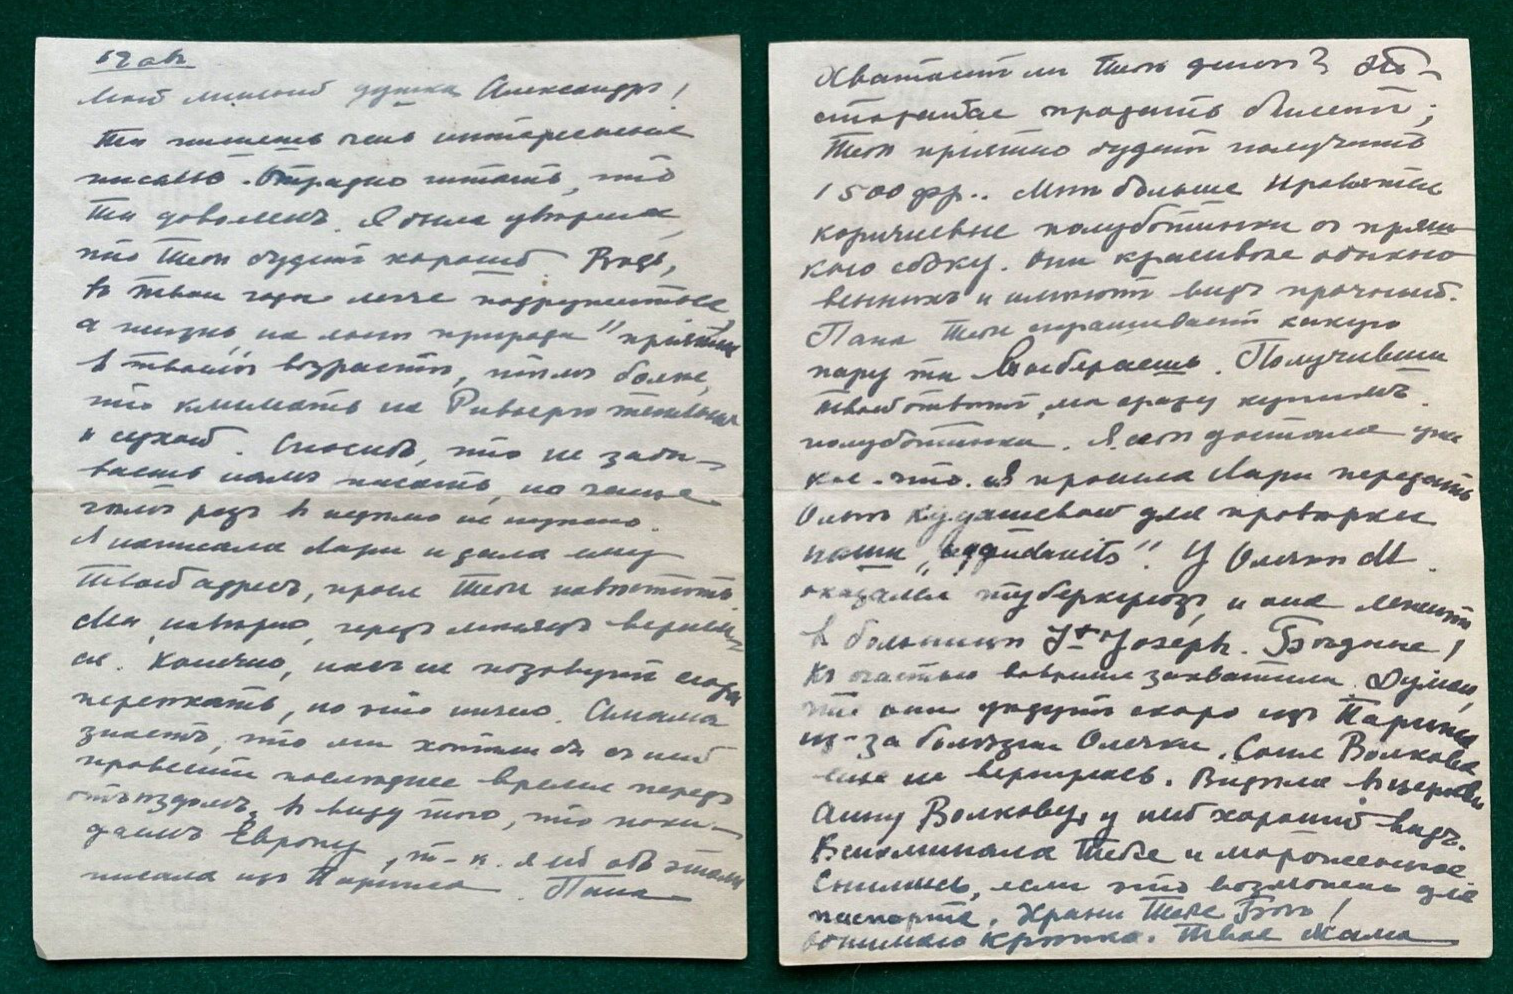 19 ав.
Мой милый душка Александръ!
Ты пишешь очень интересные
письма. Отрадно читать, что
ты доволенъ. Я была уверена,
что Тебѣ будетъ хорошо. Ведь,
въ твои годы легче подружиться,
а жизнь „на лонѣ природы“ прiятна
въ твоемъ возрастѣ, тѣмъ более,
что климатъ на Ривьерѣ
и сухой. Спасибо, что не забы-
ваешь намъ писать, но чаще
чемъ разъ въ неделю не нужно.
Я написала Лари и дала ему
Твой адресъ, прося Тебя навѣстить.
Мы, навѣрно, черезъ мѣсяцъ вернем-
ся. Конечно, насъ не позовутъ сюда
переехать, но это ничего. Амама
знаетъ, что мы хотѣли бы съ ней
провести последнее время передъ
отъѣздомъ, въ виду того, что поки-
даемъ Европу, т-к. я ей объ этомъ
писала изъ Парижа. Папа
Хватаетъ ли Тебѣ денегъ? По-
старайся продать билетъ;
Тебѣ прiятно будетъ получить
1500 фр.. Мнѣ больше нравятся
коричневые полуботинки
сбоку. Они красивѣе обыкно
венныхъ и имѣютъ видъ прочный.
Папа Тебя спрашиваетъ какую
пару ты выбираешь. Получивши
твой отвѣтъ, мы сразу купимъ
полуботинки. Я себѣ достала уже
кое-что. Я просила Лари передать
Ольгѣ Кудашевой для проверки
наши „affidavits“. У Олечки М.
оказался туберкулезъ, и она лежитъ
въ больнице St Joseph. Бедные!
Къ счастью вовремя захватили. Думаю,
что они уедутъ скоро изъ Парижа
из-за болѣзни Олечки. Соня Волкова
еще не вернулась. Видѣла въ церкви
Анну Волкову, у ней хорошiй видъ.
Вспоминала Тебя и мороженное
Снимись, если это возможно для
паспорта. Храни Тебя Богъ!
Обнимаю крѣпко. Твоя Мама